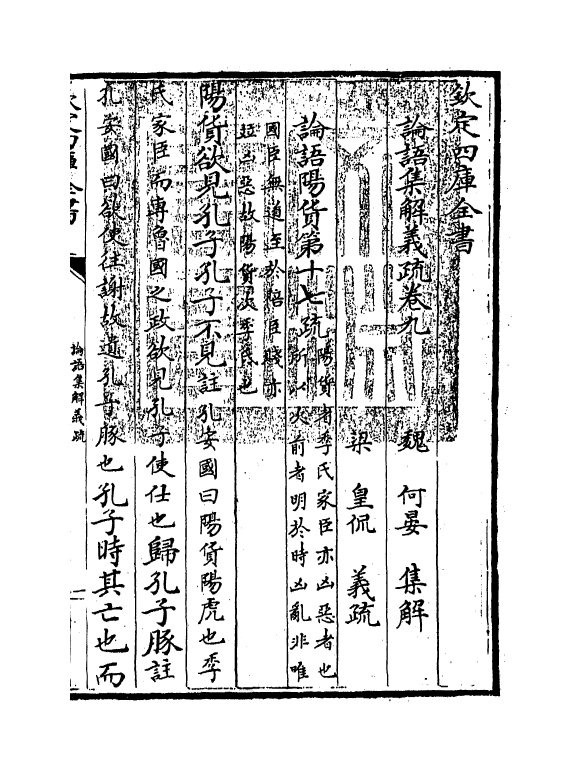 欽定四庫全書
論語集解義疏卷九 魏 何晏 集解
梁 皇侃 義疏
論語陽貨第十七疏
陽貨者季氏家臣亦凶惡者也
所以次前者明於時凶亂非唯
國臣無道至於陪臣賤亦
並凶惡故陽貨次季氏也
陽貨欲見孔子孔子不見註孔安國曰陽貨陽虎也季
氏家臣而專魯國之政欲見孔子使仕也歸孔子豚註
孔安國曰欲使往謝故遺孔子豚也孔子時其亡也而
論語集解義疏